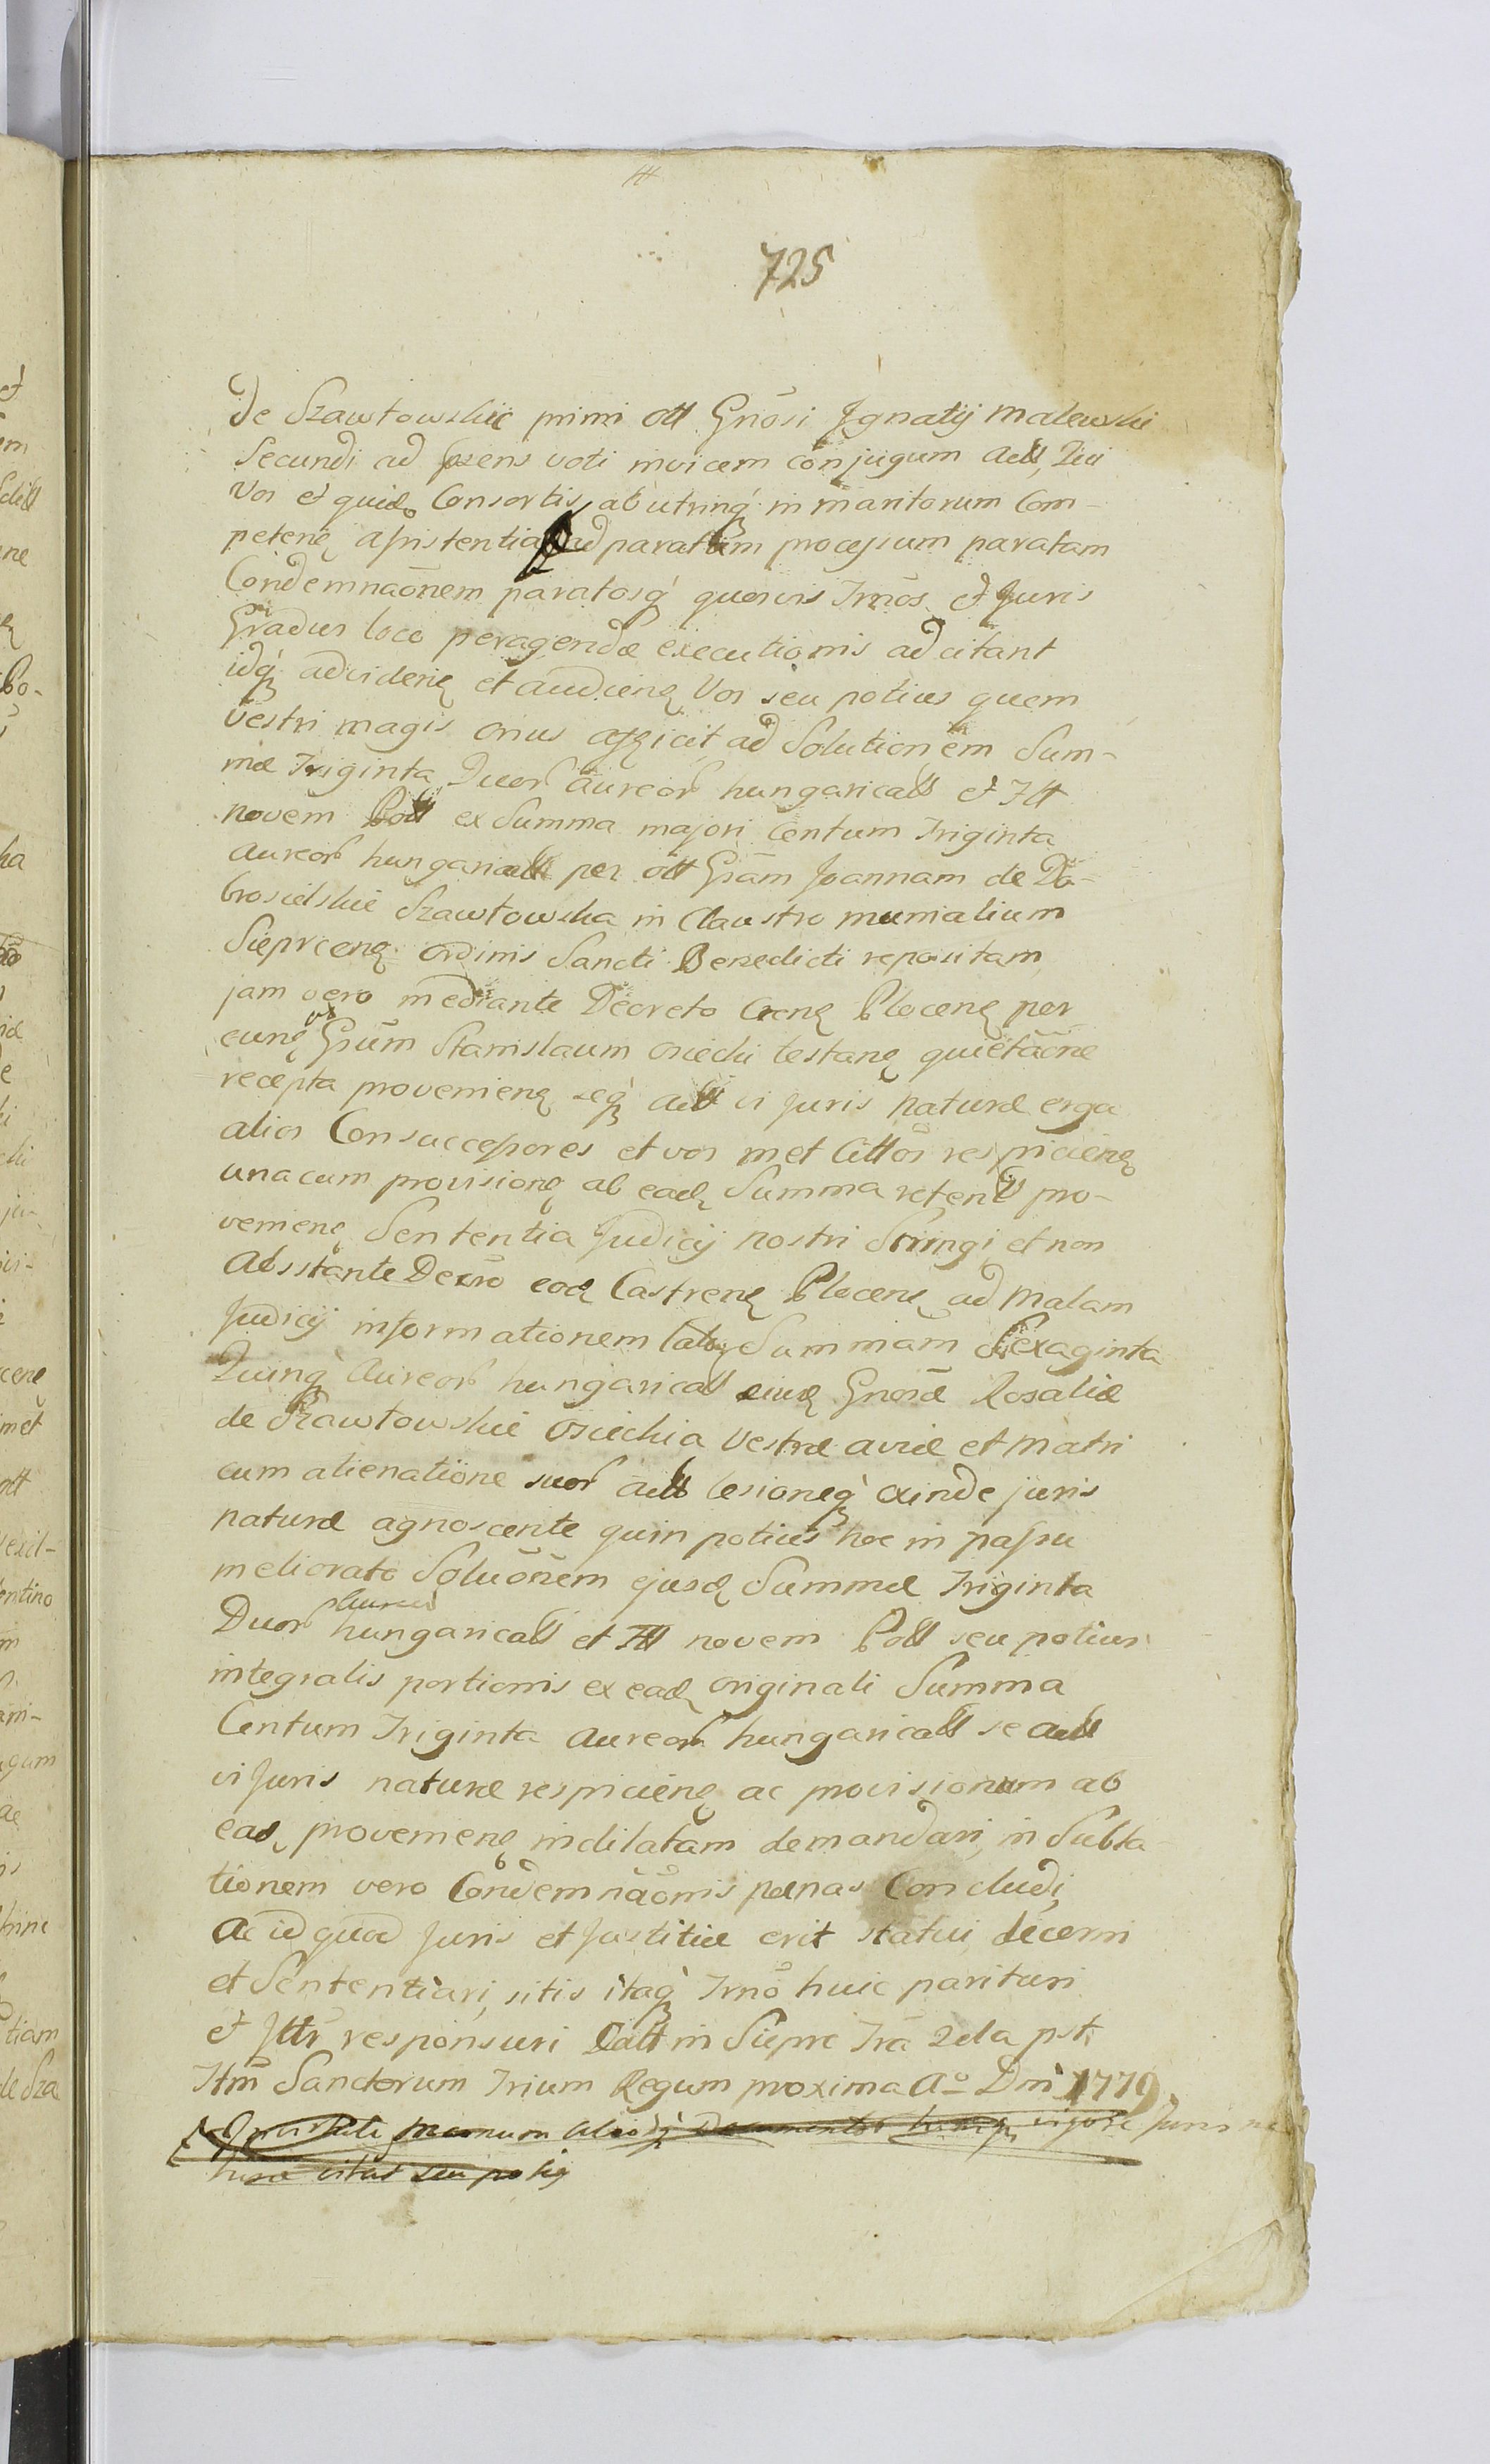 725
de Szawłowskie primi oll Gnõsi Jgnatij Malewski
Secundi ad pzens voti invicem conjugum acll, Qui
Vos et quidę Consortis ab utrinq́ in maritorum Com-
petenę assistentia ad paratum processum paratam
Condemnaõnem paratosq́ quosvis Trm̃os et Juris
Gradus loco peragendæ executionis adcitant
idq́ advidenę et audienę Vos seu potius quem
vestri magis onus afficit ad Solutionem Sum-
mæ Triginta Duor aureor hungaricall et Ttt
novem Poll ex Summa majori Centum Triginta
aureor hungaricall per oll Gsam Joannam de Do-
brosielskie Szawłowska in Claustro monialium
Siepрcenę ordinis Sancti Benedicti repositam
jam vero mediante Decreto Crenę Plocenę per
eunę Gsum Stanislaum Osiecki testanę quietaõne
recepta provenienę seq́ acll vi Juris naturæ erga
alios Consuccessores et vos met Cittos respicienę
unacum provisionę ab eadę Summa retenll pro-
venienę Sententia Judicij nostri Stringi et non
Absstante Decr̃o eodę Castrenę Plocenę ad malam
Judicij informationem lato Summam Sexaginta
Quinq́ Aureor hungaricall eiusdę Gnosæ Rosaliæ
de Szawłowskie Osiecka Vestræ aviæ et Matri
cum alienatione suor acll lesioneq́ exinde juris
naturæ agnoscente quin potius hoc in passu
meliorato Soluõnem ejusdę Summæ Triginta
Duor aureor hungaricall et Ttt novem Poll seu potius
integralis portionis ex eadę originali Summa
Centum Triginta Aureor hungaricall se acll
vi Juris naturæ respicienę ac provisionum ab
eadę provenienę indilatam demandari, in Subla
tionem vero Condemnaõnis pænas Concludi,
Ac id quod Juris et Justitiæ erit statui decerni
et Sententiari, sitis itaq́ Trm̃o huic parituri
et Jttr responsuri Datt in Siepre Fra 2da pst
Ftm̃ Sanctorum Trium Regum proxima Aº Dni 1779
vigore Juris na
turæ citat seu potiq